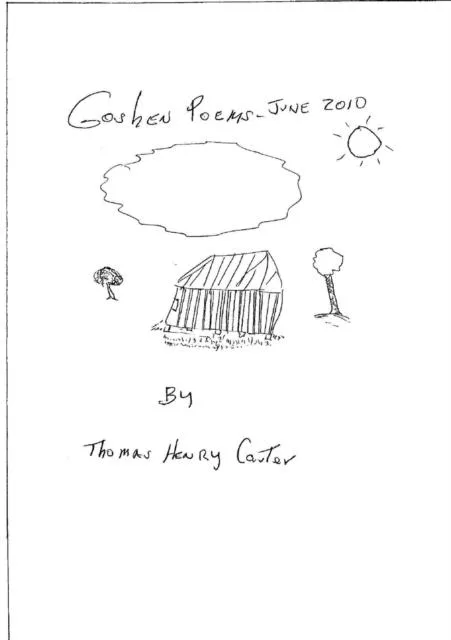 Goshen Poems - June 2010
By
Thomas Henry Carter